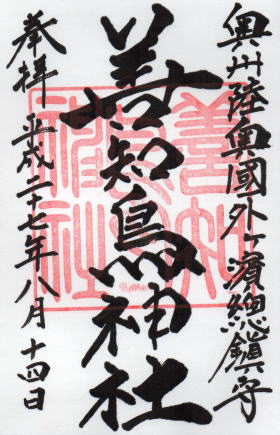 奥州陸奥國外ヶ濱總鎮守
善知鳥神社
奉拝 平成二十七年八月十四日